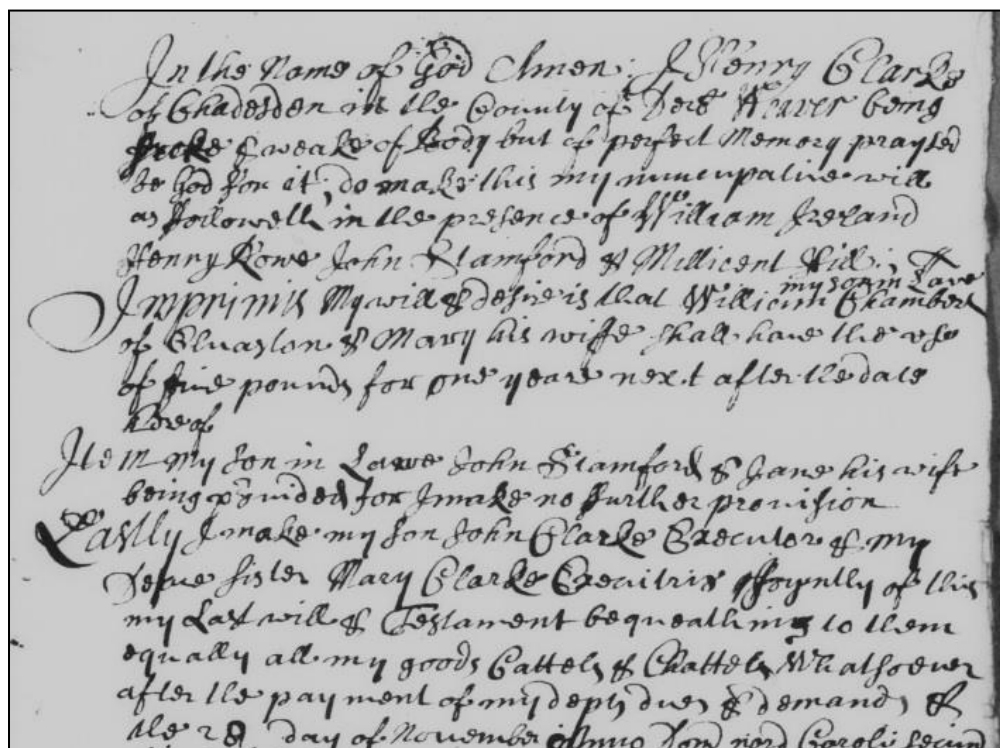 In the Name of God Amen: I Henry Clarke
of Chadesden in the County of Derb Weaver being
sicke & weake of Body but of perfect Memory praysed
be God for it, do make this my nuncupative will
as followeth in the presence of William Ireland
Henry Rowe John Stamford & Millicent Hill:
my son in Lawe
Imprimis My will & desire is that William Chambers
of Elvaston & Mary his wiffe shall have the use
of five pounds for one yeare next after the date
here of
Item my son in Lawe John Stamford & Jane his wife
being p'vided for I make no further provision
Lastly I make my son John Clarke Executor & my
Deare sister Mary Clarke Executrix Joyntly of this
my Last will & Testament bequeathing to them
equally all my goods Cattels & Chattels Whatsoever
after the payment of my depts dues & demands &
the 28 day of November Anno Dom Caroli second